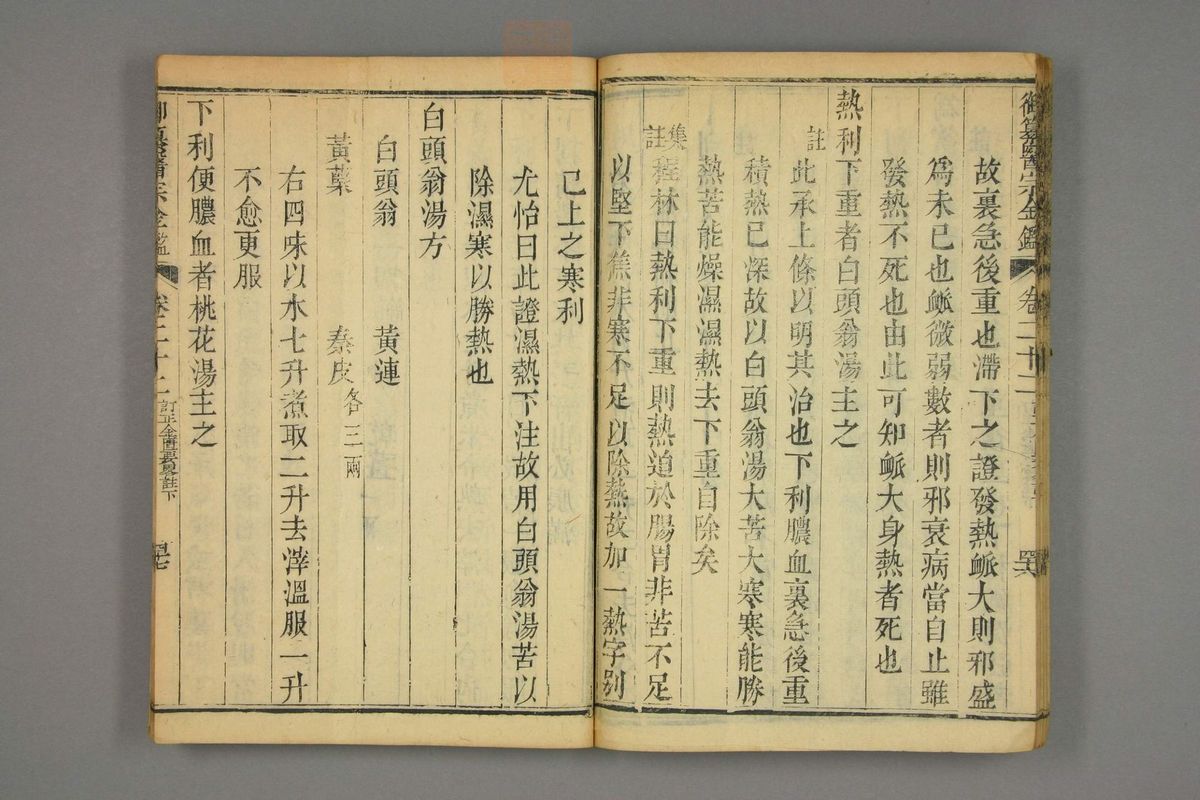 御纂醫宗金鑑 卷二十二
故裏急後重也滯下之證發熱脈大則邪盛
為未已也脈微弱數者則邪衰病當自止雖
發熱不死也由此可知脈大身熱者死也
熱利下重者白頭翁湯主之
註 此承上條以明其治也下利膿血裏急後重
積熱已深故以白頭翁湯大苦大寒寒能勝
熱苦能燥濕濕熱去下重自除矣
集註 程林曰熱利下重則熱迫於腸胃非苦不足
以堅下焦非寒不足以除熱故加一熱字別
已上之寒利
尤怡曰此證濕熱下注故用白頭翁湯苦以
除濕寒以勝熱也
白頭翁湯方
白頭翁 黃連
黃蘗 秦皮各三兩
右四味以水七升煮取二升去滓溫服一升
不愈更服
下利便膿血者桃花湯主之
卷二十二 訂正金匱要畧註下